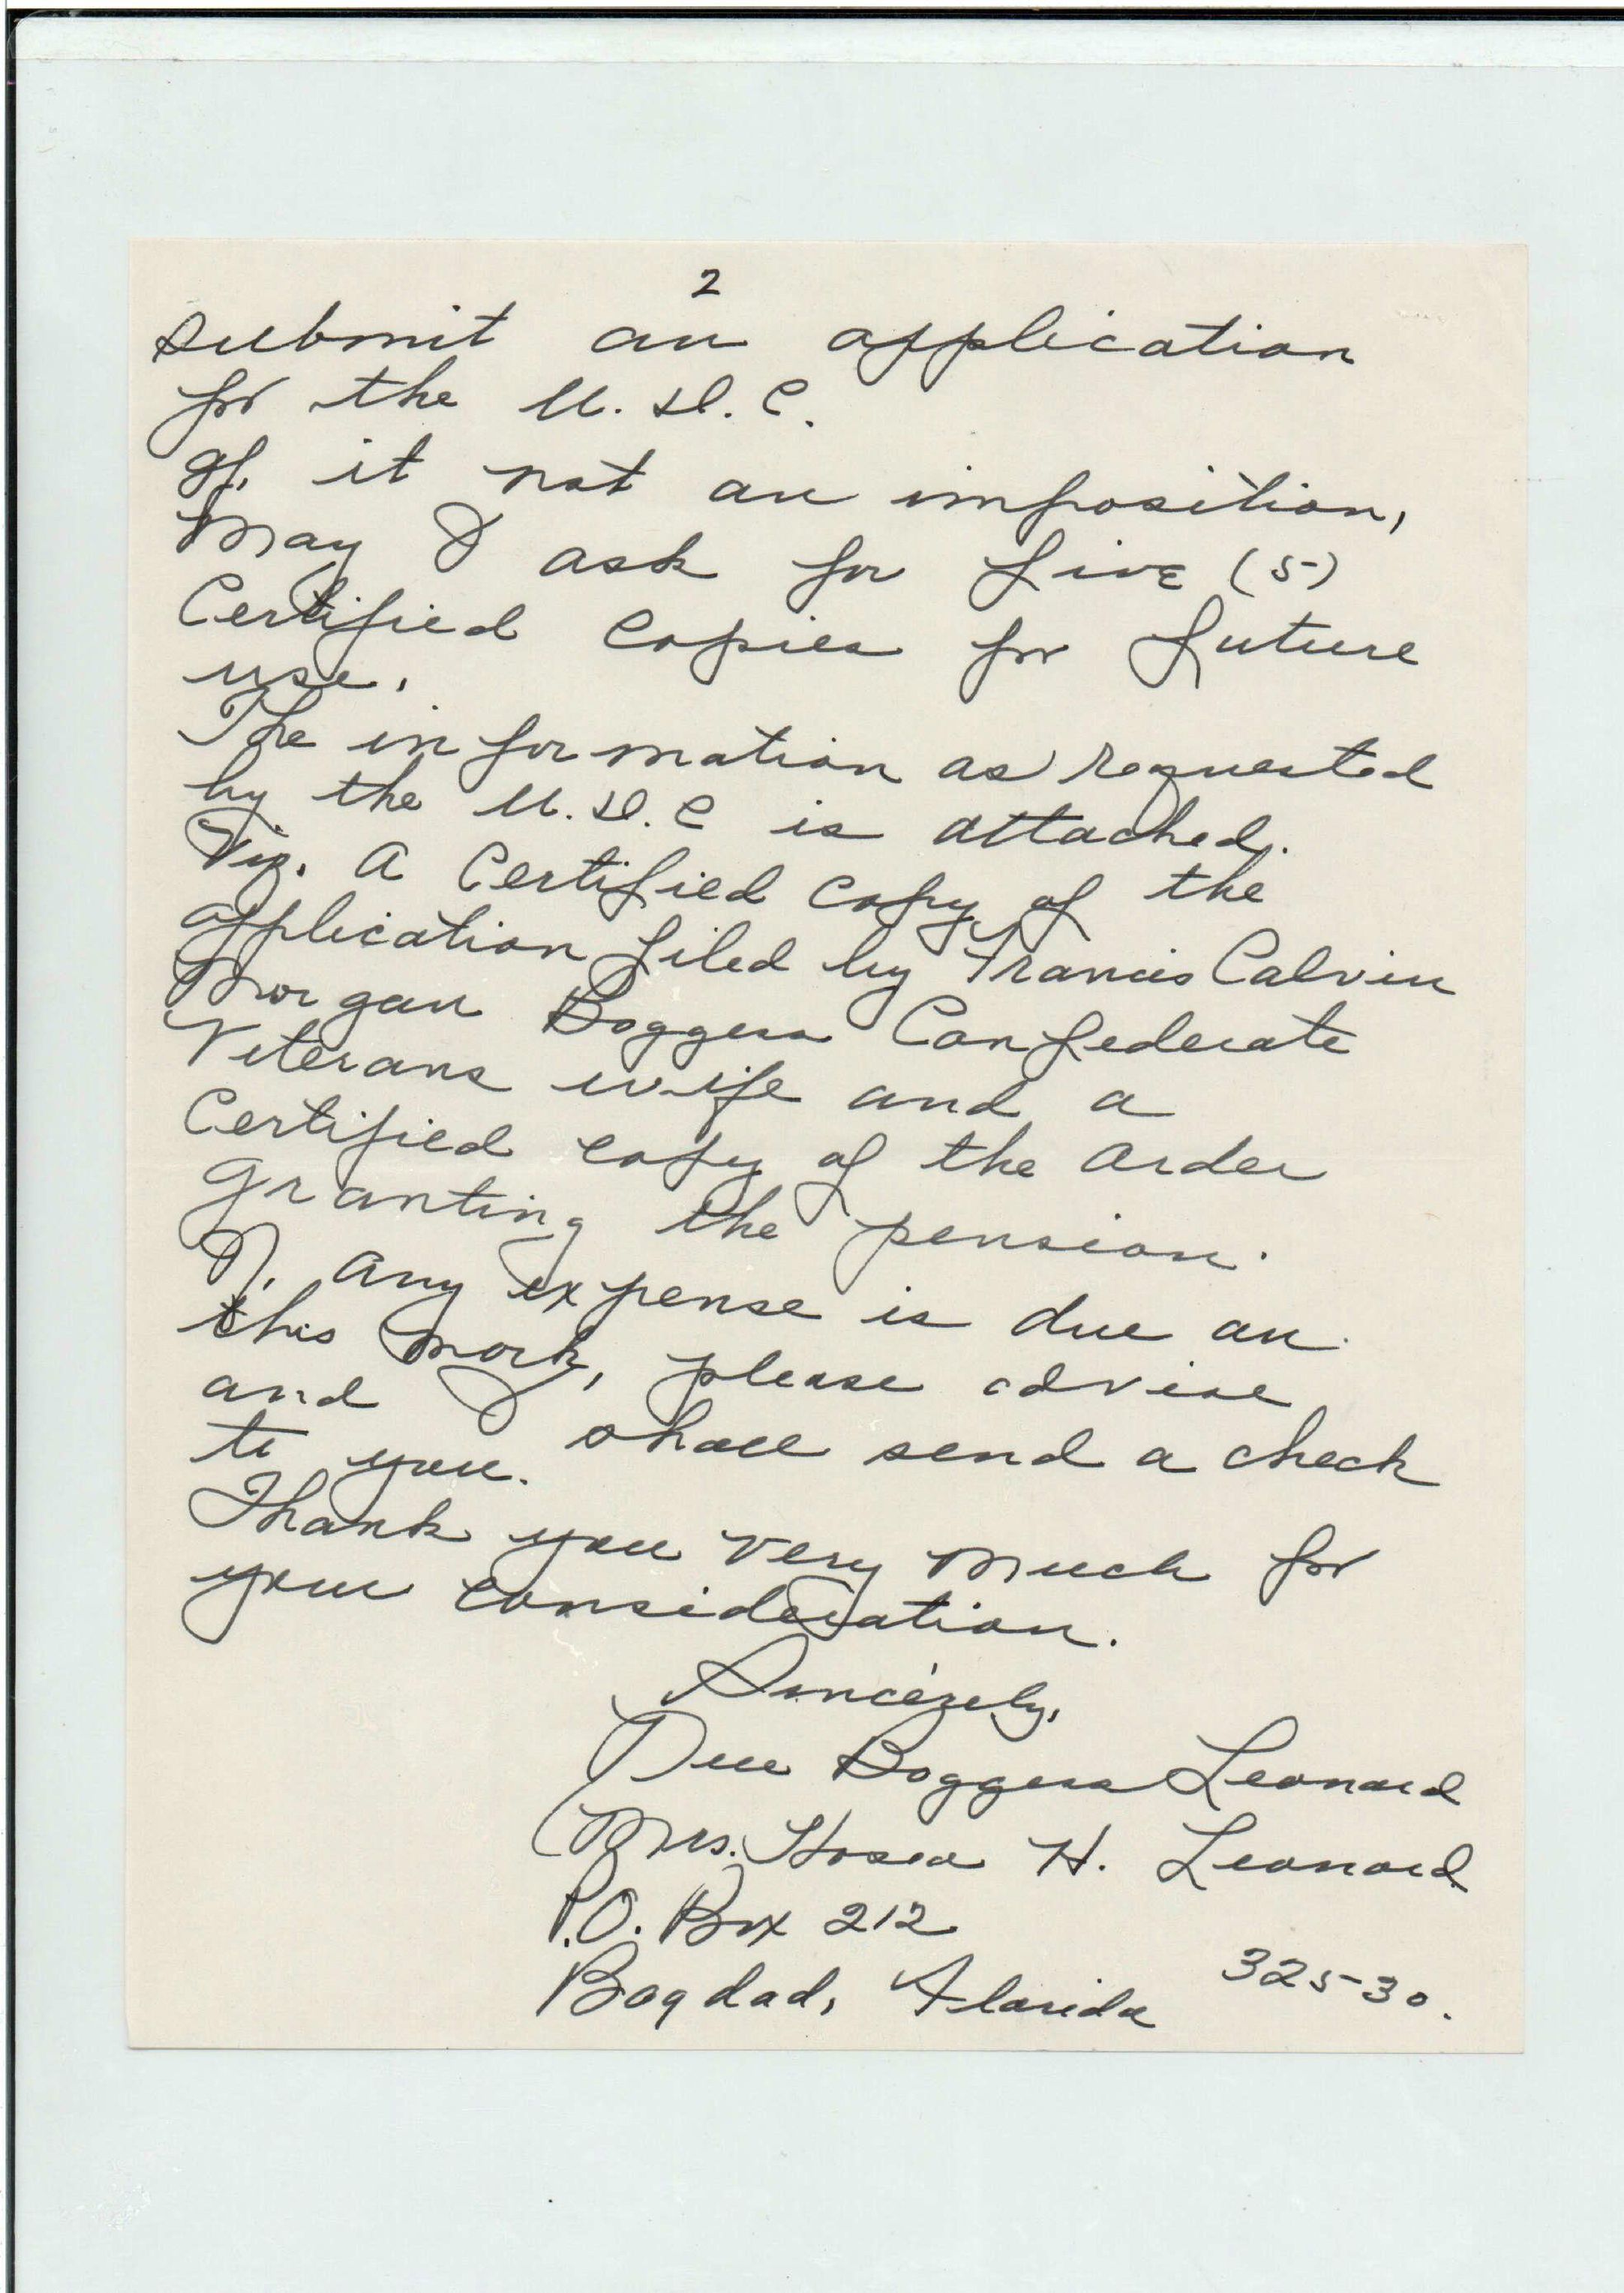 2
submit an application
for the U. D. C.
If, it not an imposition,
May I ask for five (5)
Certified Copies for future
use.
The information as requested
by the U. D. C is attached.
Viz. A Certified copy of the
application filed by Francis Calvin
Morgan Boggess Confederate
Veterans wife and a
Certified copy of the order
granting the pension.
If any expense is due on
this work, please advise
and I shall send a check
to you.
Thank you very much for
your consideration.
Sincerely,
Boggess Leonard
Mrs. Hosea H. Leonard
P.O. Box 212
Bagdad, Florida 325-30.